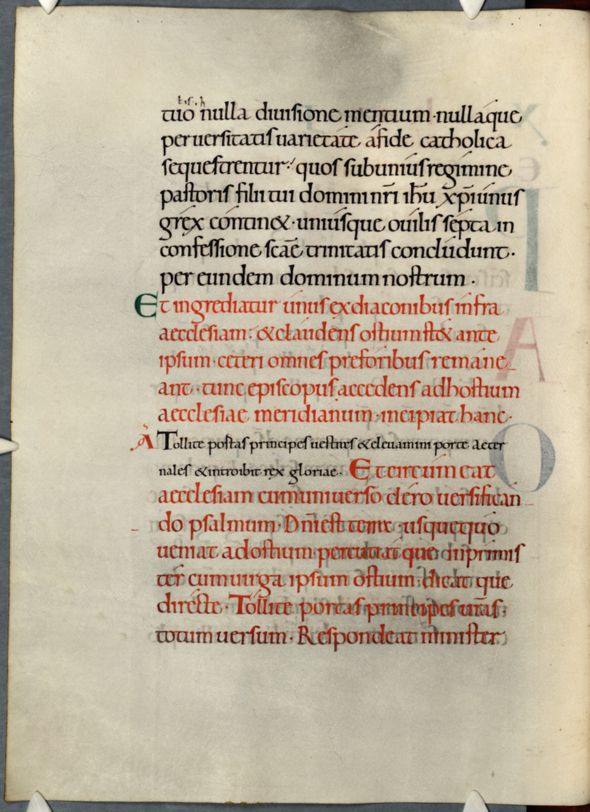 tuo nulla diuisione mentium · nullaque
peruersitatis uarietate a fide catholica
sequestrentur · quos sub unius regimine
pastoris filii tui domini nr̄i ihū xp̄i unius
grex contin& · uniusque ouilis septa in
confessione scāe trinitatis concludunt ·
per eundem dominum nostrum ·
Et ingrediatur unus ex diaconibus infra
aecclesiam · & claudens ostium st& ante
ipsum · ceteri omnes pre foribus remane
ant · tunc episcopus accedens ad hostium
aecclesiae meridianum · incipiat hanc ·
A Tollite portas principes uestras & eleuamini porte aeter
nales & introibit rex gloriae · Et circumeat
aecclesiam cum uniuerso clero uersifican
do psalmum · Dn̄i est terra · usquequo
ueniat ad ostium percutiat que inprimis
ter cum uirga ipsum ostium · dicat que
directe · Tollite portas principes ur̄as ·
totum uersum · Respondeat minister